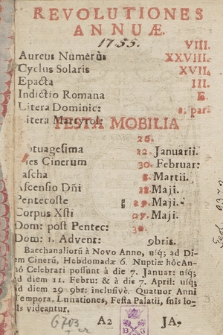 REVOLUTIONES
ANNUÆ.
1755.
Aureus Numerus VIII.
Cyclus Solaris XXVIII.
Epacta XVII.
Indictio Romana III.
Litera Dominic: E.
Litera Martyrol: e. par.
FESTA MOBILIA
tuagesima 26.
es Cinerum 12. Januarii.
ascha 30. Februar:
Ascensio Dñi 8. Martii.
Pentecoste 18. Maji.
Corpus Xsti 29. Maji.
Dom: post Pentec:
Dom: 1. Advent: 30. 9bris.
Bacchanaliorũ à Novo Anno, usq; ad Di
em Cinerũ, Hebdomadæ 6. Nuptiæ hôcAn
nô Celebrari possunt à die 7. Januar: usq;
ad diem 11. Febru: & à die 7. Aprili usq;
ad diem 29. 9br: inclusivè. Quatuor Anni
Tempora, Lunationes, Festa Palatii, suis lo
cis videantur.
A2 JA-
6703